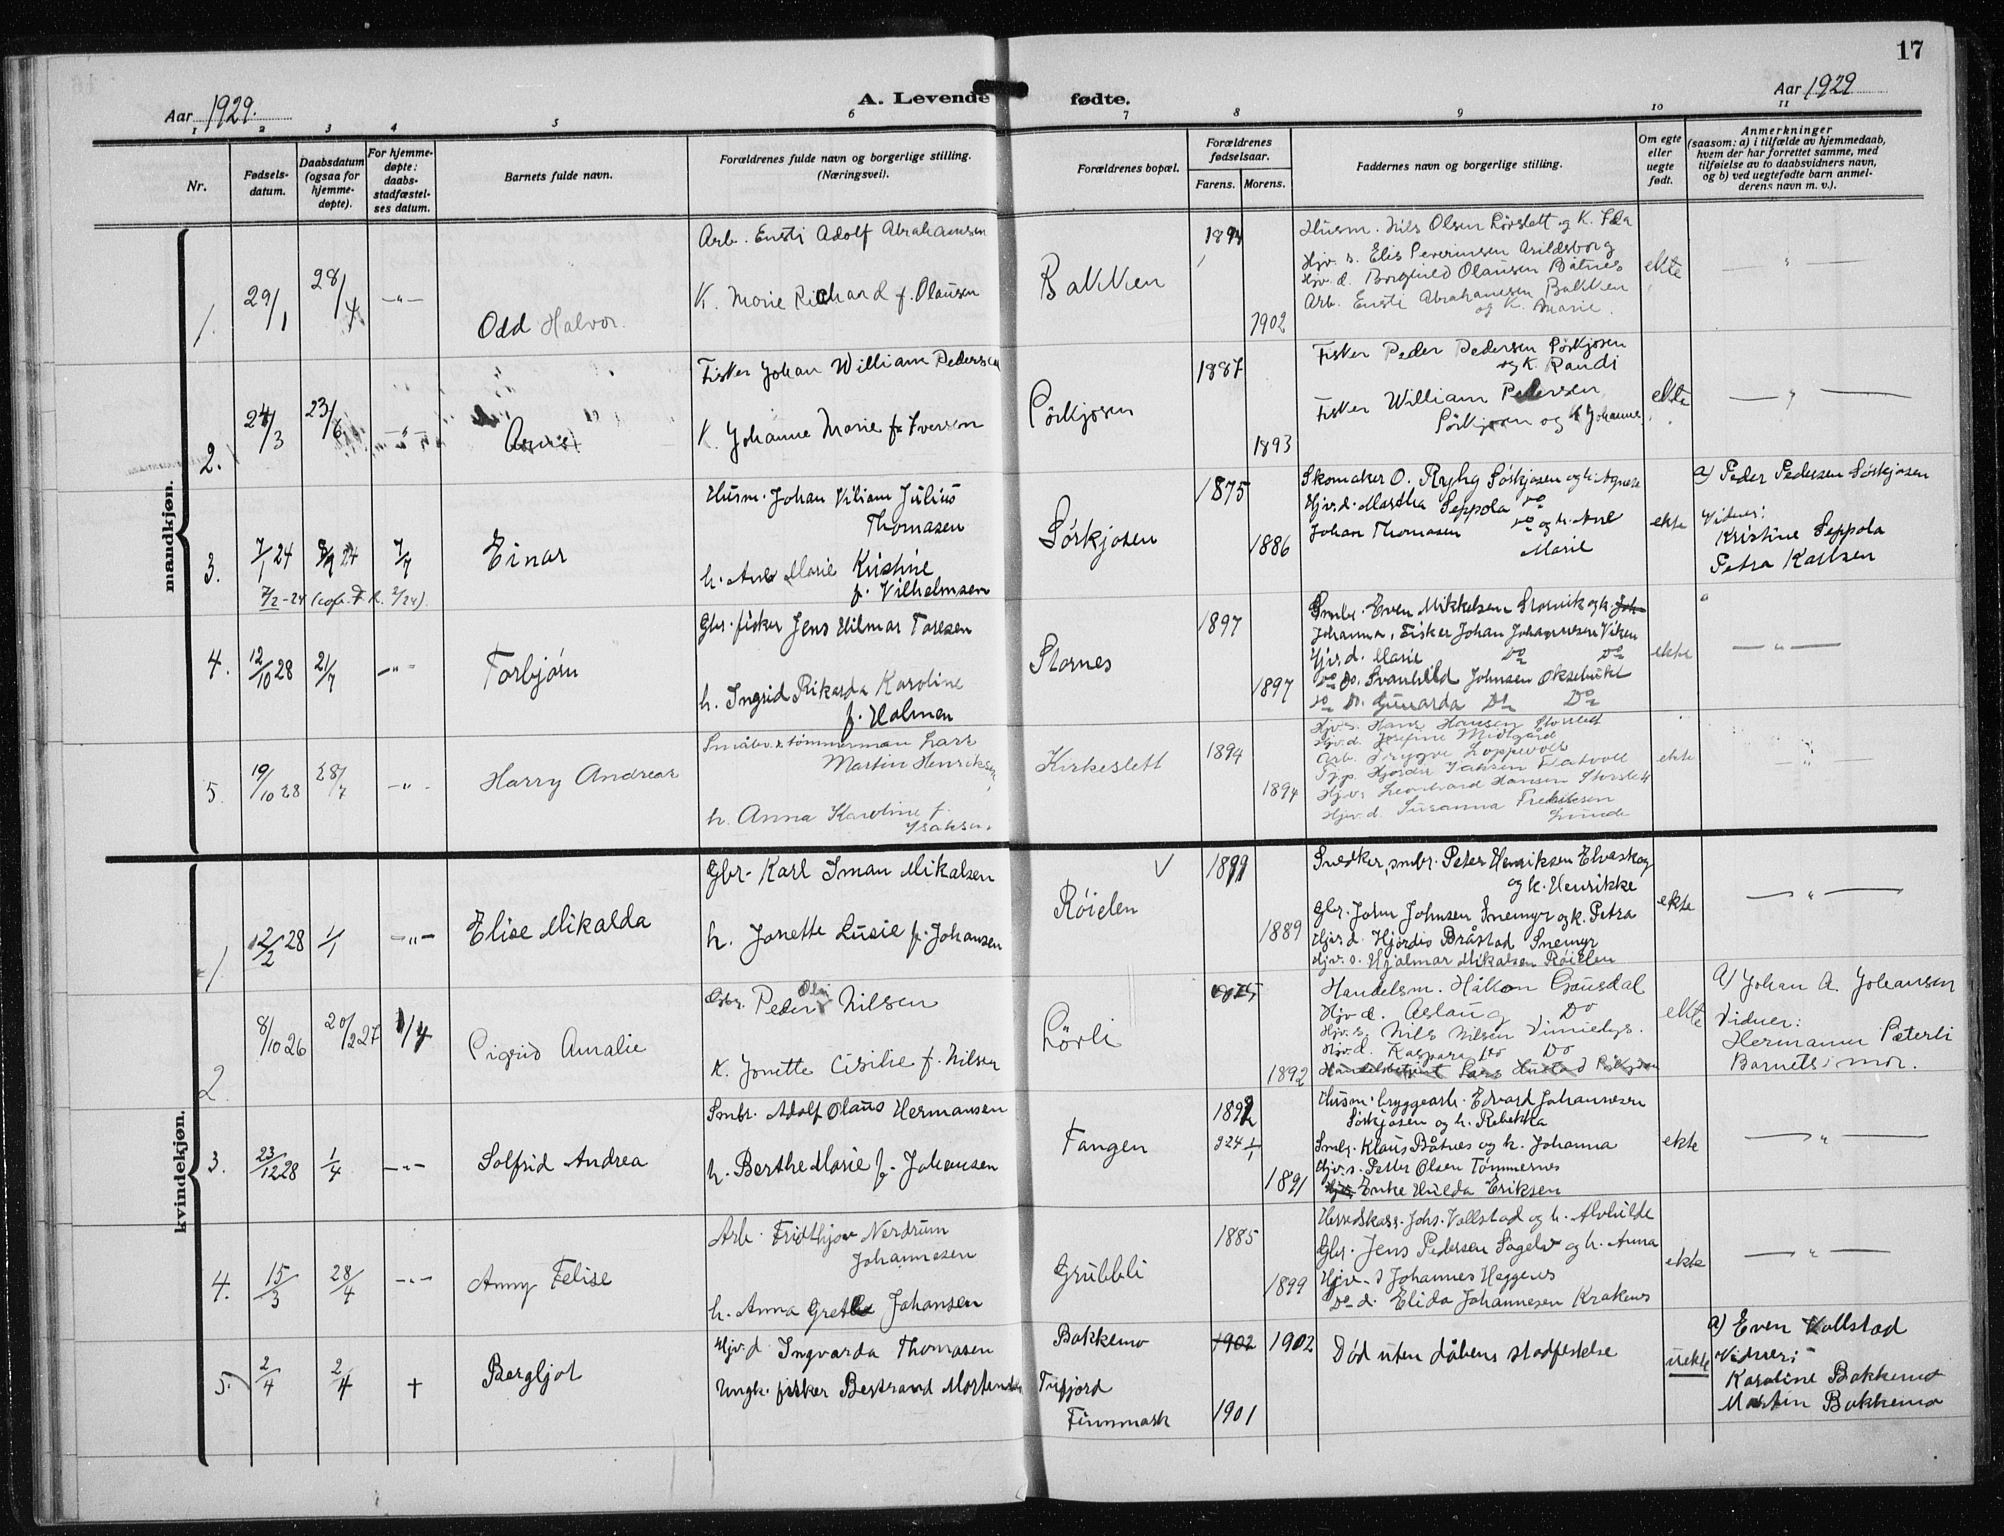 17
Aar 1929.
A. Levende fødte.
Aar 1929
1 2 3 4 5 6 7 8 9 10 11
Nr.
Fødsels-
datum.
Daabsdatum
(ogsaa for
hjemme-
døpte).
For hjemme-
døpte:
daabs-
stadfæstel-
ses datum.
Barnets fulde navn.
Forældrenes fulde navn og borgerlige stilling.
(Næringsvei).
Forældrenes bopæl.
Forældrenes
fødselsaar.
Farens. Morens.
Faddernes navn og borgerlige stilling.
Om egte
eller
uegte
født.
Anmerkninger
(saasom: a) i tilfælde av hjemmedaab,
hvem der har forrettet samme, med
tilføielse av to daabsvidners navn,
og b) ved uegtefødte barn anmel-
derens navn m. v.).
mandkjøn.
1. 29/1 28/4 -"- Odd Halvor.
Arb. Ensti Adolf Abrahamsen
K. Marie Richard f. Olausen
Bakken
1894
1902
Husm. Nils Olsen Rørslett og K. Ida
Hjv. s. Elis Severinsen Arildsborg
Hjv. d. Borghild Olausen Båtnes
Arb. Ensti Abrahamsen Bakken
og K. Marie.
ekte
— " —
2. 24/3 23/6 -"-
Fisker Johan William Pedersen
K. Johanne Marie f. Iversen
Sørkjosen
1887
1893
Fisker Peder Pedersen Sørkjosen
og K. Randi
Fisker William Pedersen
Sørkjosen og K Johanne
ekte
— " —
3. 7/1 24 24 7/7 Einar
7/2-24
Husm. Johan Viliam Julius
Thomasen
h. Ane Marie Kristine
f. Vilhelmsen
Sørkjosen
1875
1886
Skomaker O. Ryhg Sørkjosen og h. Agnese
Hjv. d. Martha Seppola do
Johan Thomasen do og h. Ane
Marie
ekte
a) Peder Pedersen Sørkjosen
Vidner:
Kristine Seppola
Petra Karlsen
4. 12/10 28 21/7 -"- Torbjørn
Gbr. fisker Jens Hilmar Toresen
h. Ingrid Rikarda Karoline
f. Holmen
Stornes
1897
1897
Smbr. Even Mikkelsen Storvik og h. Joh
Johanna, Fisker Johan Johannesen Viken
Hjv. d. Marie do do
do do. Svanhild Johnsen Oksebukt
do D. Gunarda Do Do
ekte
— " —
5. 19/10 28 28/7 -"- Harry Andreas
Småbr. & tømmerman Lars
Martin Henriksen
h. Anna Karoline f.
Isaksen
Kirkeslett
1894
1894
Hjv. s. Hans Hansen Storslett
Hjv. d. Josefine Midtgård
Arb. Trygve Loppevoll
Hjv. s. Leonhard Hansen Storslett
Hjv. d. Susanna Fredriksen
Lunde
ekte
— " —
kvindekjøn.
1. 12/2 28 1/1 -"- Elise Mikalda
Gbr. Karl Iman Mikalsen
h. Janette Lusie f. Johansen
Røielen
V
1899
1889
Snedker, smbr. Peter Henriksen Elveskog
og k. Henrikke
Gbr. John Johnsen Snemyr og k. Petra
Hjv. d. Hjördis Bråstad Snemyr
Hjv. s. Hjalmar Mikalsen Røielen
ekte
— " —
2. 8/10 26 20/2 27 1/4 Sigrid Amalie
Gbr. Peder Nilsen
K. Jonette Cisilie f. Nilsen
Sørli
1892
Handelsm. Håkon Gausdal
Hjv d. Aslaug Do
Hjv. s. Nils Nilsen
Hjv. d. Kaspara Do Do
ekte
a) Johan A. Johansen
Vidner:
Hermann Peterli
Barnets mor.
3. 23/12 28 1/4 -"- Solfrid Andrea
Smbr. Adolf Olaus Hermansen
h. Berthe Marie f. Johansen
Tangen
1892
224 1/1
1891
Husm. bryggearb. Edvard Johannesen
Sørkjosen og h. Rebekka
Smbr. Klaus Båtnes og h. Johanna
Hjv. s. Petter Olsen Tømmernes
Enke Hulda Eriksen
ekte
— " —
4. 15/3 28/4 -"- Anny Felise
Arb. Fridthjov Nerdrum
Johannesen
h. Anna Grethe Johansen
Grubbli
1885
1899
Herredskass. Johs. Vollstad og h. Alvhilde
Gbr. Jens Pedersen Sagelv og h. Anna
Hjv. s Johannes Heggenes
Do d. Elida Johannesen Krakenes
ekte
— " —
5. 2/4 2/4 † Bergljot
Hjv. d. Ingvarda Thomasen
Ungk. fisker Bertrand Mortensen
Bakkemo
Tufjord
Finnmark
1902 1902
1901
Død uten dåbens stadfestelse
uekte
a) Even Vollstad
Vidner:
Karoline Bakkemo
Martin Bakkemo